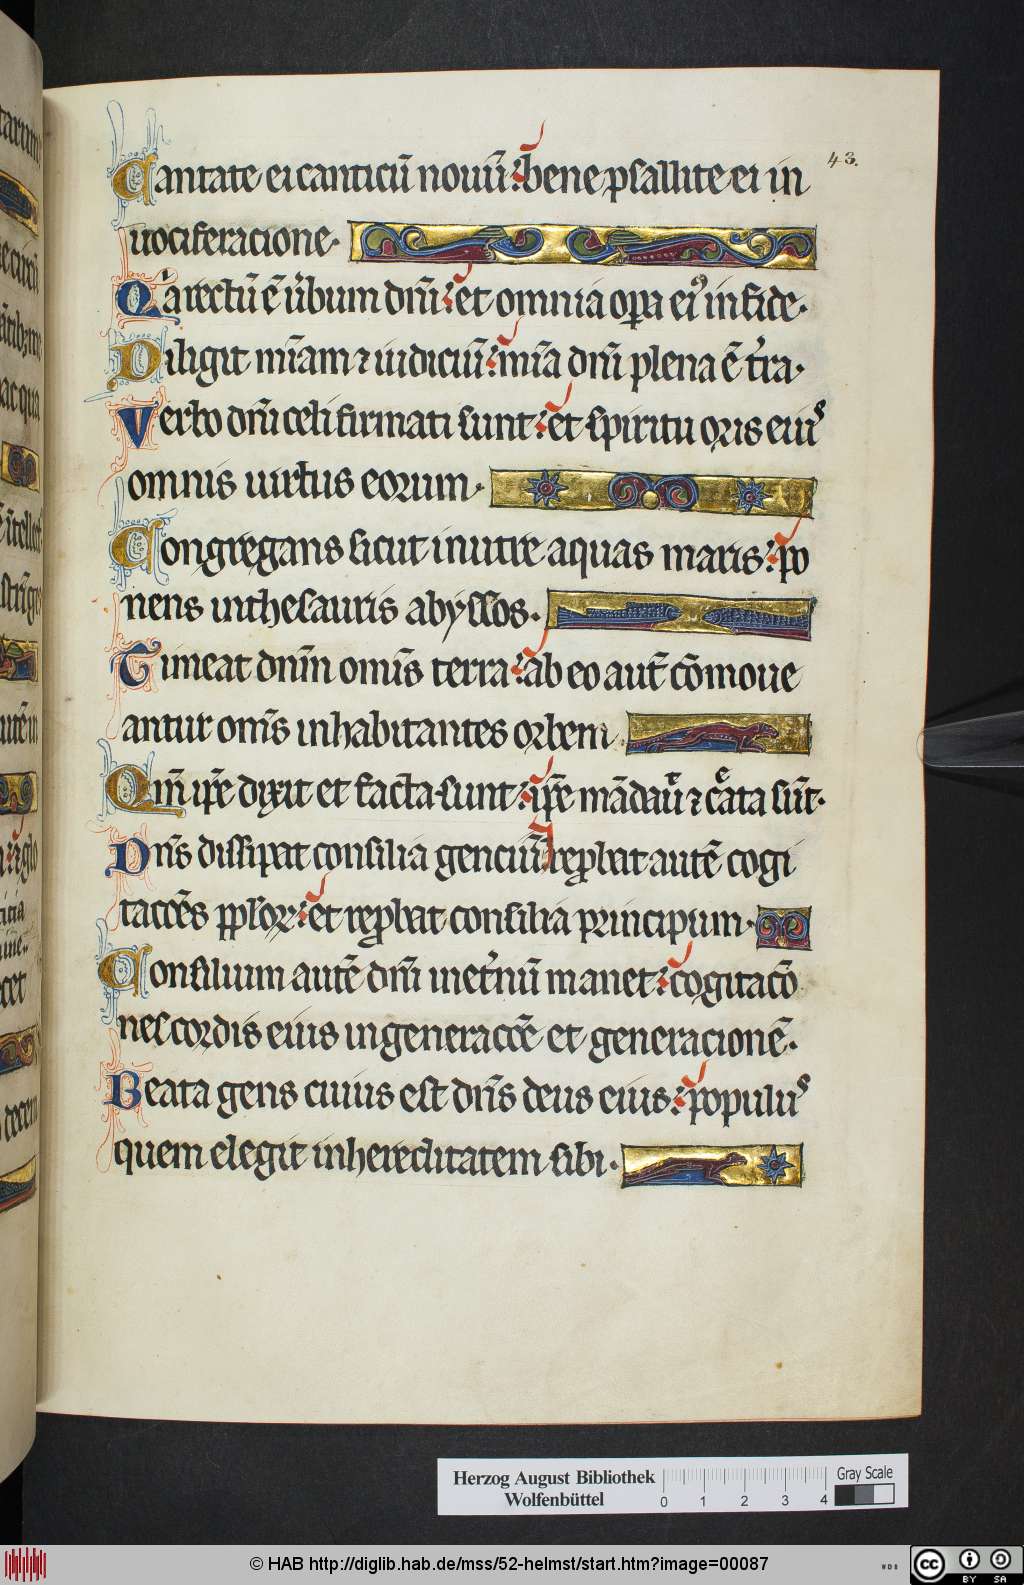 43.
Cantate ei canticū nouū : bene psallite ei in
uociferacione .
Qa rectū ē ūbum dn̄i : et omnia oꝑa ei⁹ in fide .
Diligit mīam ⁊ iudiciū : mīa dn̄i plena ē t̄ra .
Verbo dn̄i celi firmati sunt : et spiritu oris eiuˢ
omnis uirtus eorum .
Congregans sicut in utre aquas maris : po
nens in thesauris abyssos .
Timeat dnm̄ omīs terra : ab eo aut̄ cōmoue
antur omīs inhabitantes orbem .
Qm̄ ip̄e dixit et facta sunt : ip̄e mādau̾ ⁊ cͤata sūt .
Dn̄s dissipat consilia genciū : reꝓbat autē cogi
taccōēs ppl̄oꝝ : et reꝓbat consilia principum .
Consilium autē dn̄i in et̄nū manet : cogitacō
nes cordis eius in generaccōē et generacionē .
Beata gens cuius est dn̄s deus eius : populuˢ
quem elegit in hereditatem sibi .
Herzog August Bibliothek
Wolfenbüttel
0 1 2 3 4
Gray Scale
© HAB http://diglib.hab.de/mss/52-helmst/start.htm?image=00087
cc BY SA